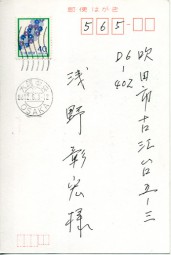 郵便はがき
40
565
吹田市古江台五ー三
D6-402
浅野彰宏様
OSAKA